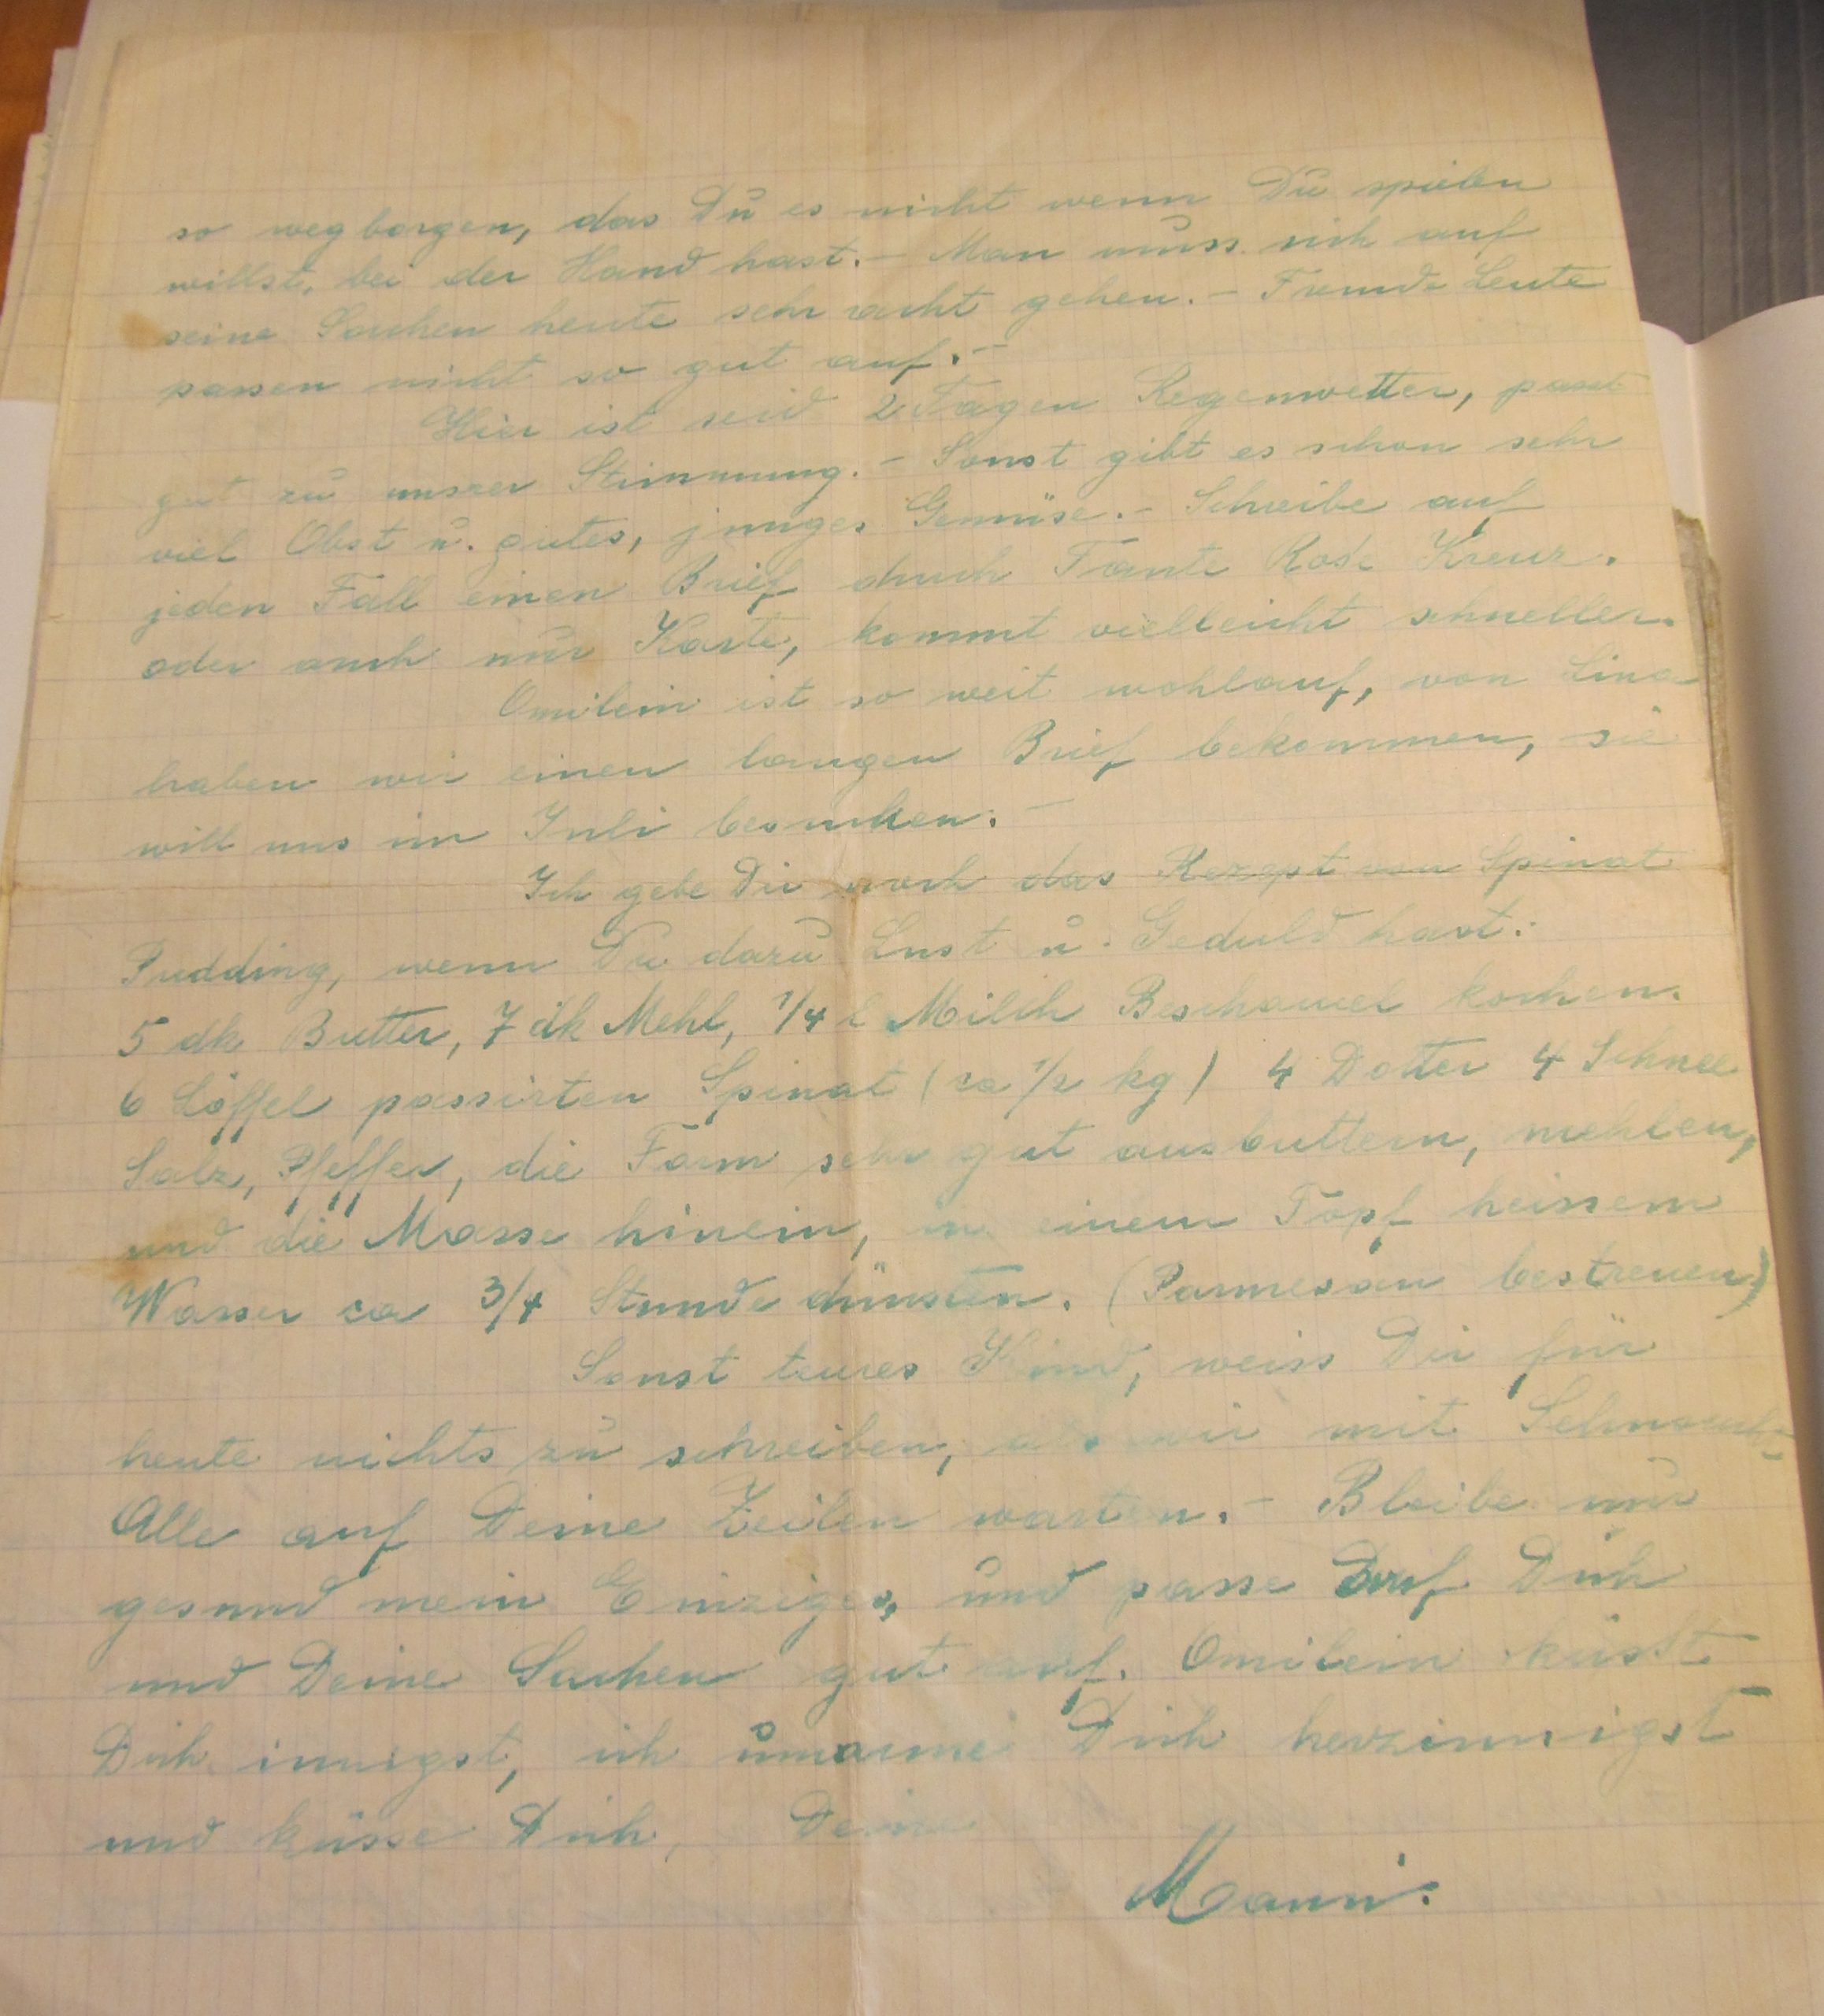 so weg borgen, das Du es nicht wenn Du spielen
willst, bei der Hand hast. – Man muss sich auf
seine Sachen heute sehr acht gehen. – Fremde Leute
passen nicht so gut auf. –
Hier ist seid 2 Tagen Regenwetter, passt
gut zu unserer Stimmung. – Sonst gibt es schon sehr
viel Obst u. gutes, junges Gemüse. – Schreibe auf
jeden Fall einen Brief durch Tante Rose Kreuz.
oder auch nur Karte, kommt vielleicht schneller.
Omilein ist so weit wohlauf, von Lina
haben wir einen langen Brief bekommen, sie
will uns im Juli besuchen. –
Ich gebe Dir noch das Rezept von Spinat
Pudding, wenn Du dazu Lust u. Geduld hast:
5 dk Butter, 7 dk Mehl, 1/4 l Milch Beschamel kochen.
6 Löffel passirten Spinat (ca 1/2 kg) 4 Dotter 4 Schnee
Salz, Pfeffer, die Form sehr gut ausbuttern, mehlen,
und die Masse hinein, in einem Topf heissem
Wasser ca 3/4 Stunde dünsten. (Parmesan bestreuen)
Sonst teures Kind, weiss Dir für
heute nichts zu schreiben, als wir mit Sehnsucht
Alle auf Deine Zeilen warten. – Bleibe nur
gesund mein Einziges, und passe auf Dich
und Deine Sachen gut auf. Omilein küsst
Dich innigst, ich umarme Dich herzinnigst
und küsse Dich, Deine
Mami.